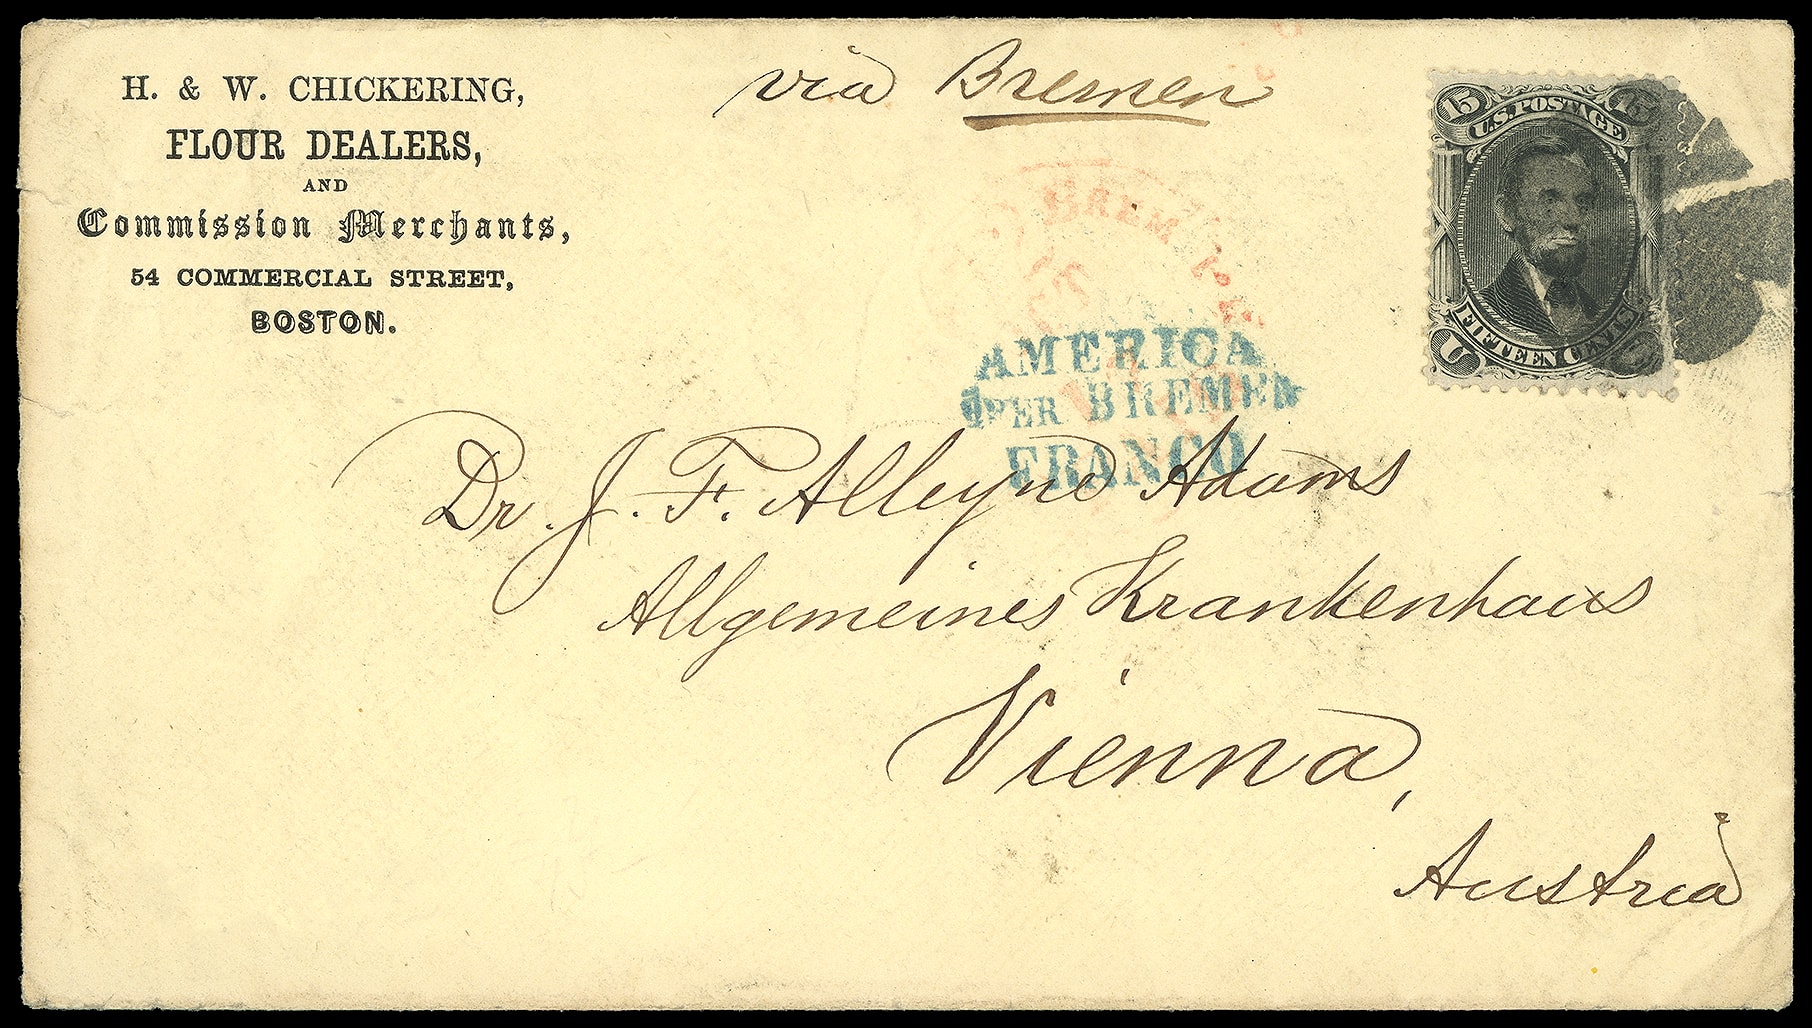 H. & W. CHICKERING,
FLOUR DEALERS,
AND
Commission Merchants,
54 COMMERCIAL STREET,
BOSTON.
via Bremen
15 U.S. POSTAGE 15
FIFTEEN CENTS
U
BREM
AMERICA
ÜBER BREMEN
FRANCO
Dr. J. F. Alleyne Adams
Allgemeines Krankenhaus
Vienna,
Austria